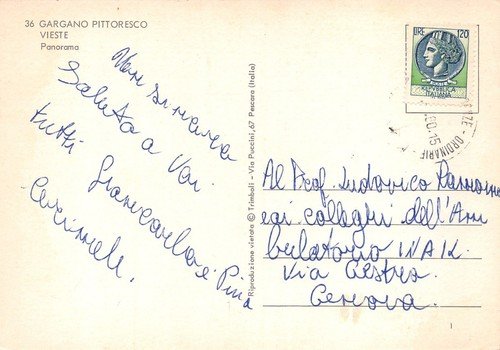 36 GARGANO PITTORESCO
VIESTE
Panorama
LIRE 120
REPVBBLICA
ITALIANA
ORDINARIE
20.15
Saluto a Voi
tutti Giancarlo e Pina
Riproduzione vietata © Trimboli - Via Puccini, 67 Pescara (Italia)
Al Prof. Ludovico
e ai colleghi dell'Am
bulatorio INAIL
Via
Genova.